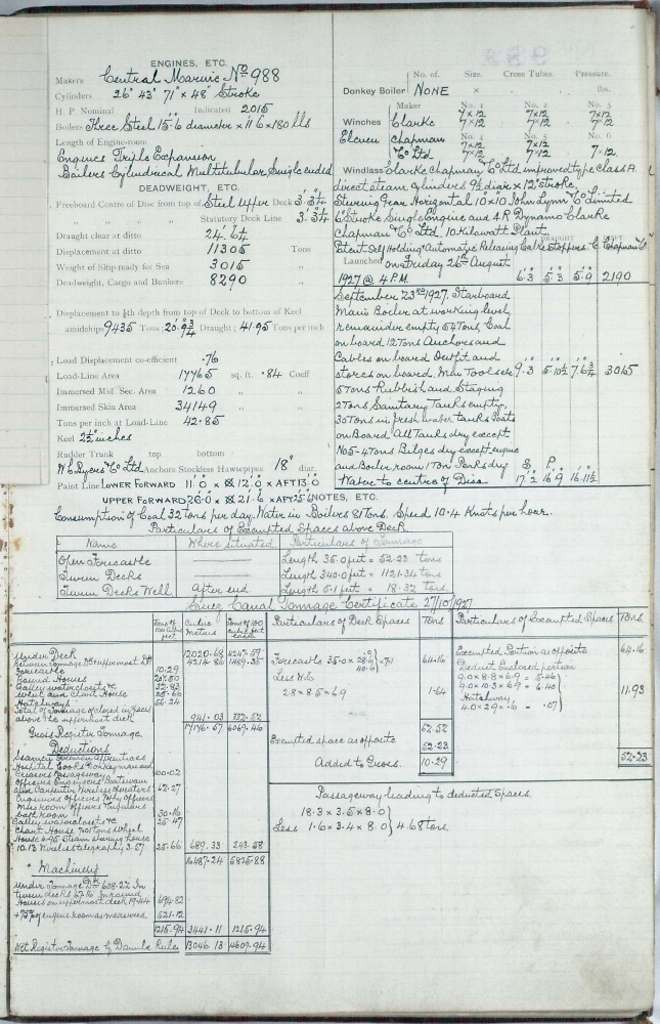 ENGINES, ETC.
Makers Central Marine No 988
Cylinders 26" 43" 71" x 48" Stroke
H. P. Nominal Indicated 2015
Boilers Three Steel 15.6 diameter x 11.6 x 180 lbs
Length of Engine-room
Engines Triple Expansion
Boilers Cylindrical Multitubular Single ended
DEADWEIGHT, ETC.
Freeboard Centre of Disc from top of Steel Upper Deck 3'.3¼
Statutory Deck Line 3.3¼
Draught clear at ditto 24.6¼
Displacement at ditto 11305 Tons
Weight of Ship ready for Sea 3015
Deadweight, Cargo and Bunkers 8290
Displacement to ⅘th depth from top of Deck to bottom of Keel
amidships 9435 Tons 20.9¾ Draught; 41.95 Tons per inch
Load Displacement co-efficient .76
Load-Line Area 17765 sq. ft. .84 Coeff
Immersed Mid. Sec. Area 1260
Immersed Skin Area 34149
Tons per inch at Load-Line 42.85
Keel 2½ inches
Rudder Trunk top bottom
W L Byers & Co Ltd Anchors Stockless Hawsepipes 18" diar.
Paint Line LOWER FORWARD 11.0 x 12.0 x AFT 13.0
UPPER FORWARD 20.0 x 21.6 x AFT 25.6
Donkey Boiler NONE
No. of Size. Cross Tubes. Pressure.
× lbs.
Maker No. 1 No. 2 No. 3
Winches Clarke 7x12 7x12 7x12
7x12 7x12 7x12
Eleven Chapman No. 5 No. 6
& Co Ltd 7x12 7x12 7.12
7x12 7x12
Windlass Clarke Chapman & Co Ltd improved type Class A
direct steam cylinders 9½ diar x 12" stroke
Steering Gear Horizontal 10 x 10 John Lynn & Co Limited
6" Stroke Single Engine and 4 R Dynamo Clarke
Chapman & Co Ltd. 10. Kilowatt Plant
Patent Self Holding Automatic Releasing Cable stoppers C Chapman & Co
Launched on Friday 26th August
1927 @ 4 P.M. 6.3 5.3 5.9 2190
September 23rd 1927. Starboard
Main Boiler at working level
remainder empty 54 Tons Coal
on board 12 Tons Anchors and
Cables on board Outfit and
stores on board. Men Tools etc 9.3 5.10½ 7.6¾ 3065
5 Tons Rubbish and Staging
2 Tons Sanitary Tanks empty,
30 Tons in fresh water tanks Boats
on Board All Tanks dry except
No 5-4 Tons Bilges dry except engine
and Boiler room 1 Ton Peaks dry S. P.
Water to centre of Disc 17.2 16.9 16.11½
NOTES, ETC.
Consumption of Coal 32 tons per day. Water in Boilers 81 Tons. Speed 10.4 Knots per hour.
Particulars of Exempted Spaces above Deck
Name Where situated Particulars of Tonnage
Open Forecastle Length 35.0 feet = 52.23 tons
Tween Decks Length 340.0 feet = 1121.34 tons
Tween Decks Well After end Length 5.1 feet = 18.32 tons
Suez Canal Tonnage Certificate 27/10/1927
Tons of 100 cubic feet Cubic Meters Tons of 100 cubic feet each Particulars of Deck Spaces Tons Particulars of Exempted Spaces Tons.
Under Deck 12020.68 4247.57
4214.86 1489.35
Forecastle 10.29
Round Houses
Galley watercloset &c 32.83
Wheel and Chart House 25.66
Hatchways 56.24
Total of Tonnage enclosed in spaces
above the uppermost deck 941.03 332.52
Gross Register Tonnage 17176.57 6069.46
Forecastle 35.0 x 28.6 / 40.6 x 7.1 64.16
Less ½
28 x 8.5 x 6.9 1.64
62.52
Exempted space as opposite 52.23
Added to Gross. 10.29
Exempted Portion as opposite 64.16
Deduct Enclosed portion
9.0 x 8.8 x 6.9 = 5.46
9.0 x 10.3 x 6.9 = 6.40
Hatchway
4.0 x 29 x .6 = .07 11.93
52.23
Passageway leading to deducted Spaces
18.3 x 3.5 x 8.0
Less 1.6 x 3.4 x 8.0 } 4.68 tons
Deductions
Seamen Firemen apprentices
Hospital Cooks
100.02
Officers Engineers Boatswain
and Carpenter Wireless Operators 62.27
Engineers Officers
Mess room Officers & Engineers
Bath room 30.16
Galley, waterclosets &c 25.47
Chart House 7.01 Tons Wheel
House 4.95 Steam steering house
10.13 Wireless telegraphy 3.57 25.66 689.33 243.58
16487.24 5825.88
Machinery
Under Tonnage Dk 608.22 In
tween decks 67.16 In round
Houses on uppermost deck 19.44 694.82
+ 75% of engine room as measured 521.12
1215.94 3441.11 1215.94
Net Register Tonnage by Danube Rules 13046.13 4609.94